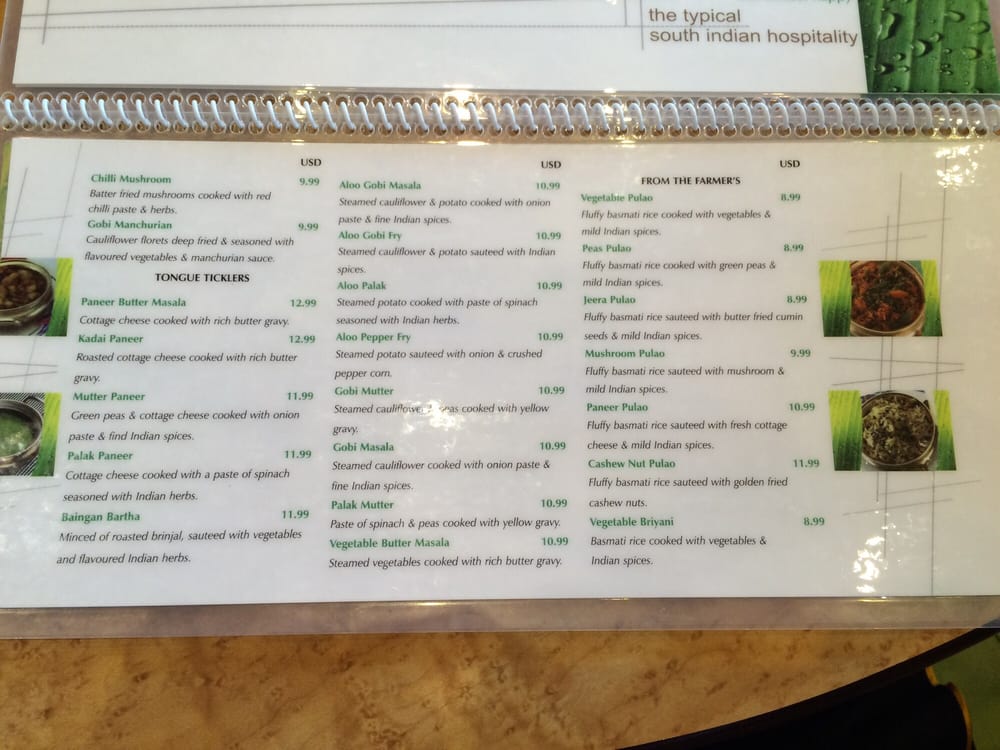 the typical
south indian hospitality
USD
Chilli Mushroom 9.99
Batter fried mushrooms cooked with red
chilli paste & herbs.
Gobi Manchurian 9.99
Cauliflower florets deep fried & seasoned with
flavoured vegetables & manchurian sauce.
TONGUE TICKLERS
Paneer Butter Masala 12.99
Cottage cheese cooked with rich butter gravy.
Kadai Paneer 12.99
Roasted cottage cheese cooked with rich butter
gravy.
Mutter Paneer 11.99
Green peas & cottage cheese cooked with onion
paste & find Indian spices.
Palak Paneer 11.99
Cottage cheese cooked with a paste of spinach
seasoned with Indian herbs.
Baingan Bartha 11.99
Minced of roasted brinjal, sauteed with vegetables
and flavoured Indian herbs.
USD
Aloo Gobi Masala 10.99
Steamed cauliflower & potato cooked with onion
paste & fine Indian spices.
Aloo Gobi Fry 10.99
Steamed cauliflower & potato sauteed with Indian
spices.
Aloo Palak 10.99
Steamed potato cooked with paste of spinach
seasoned with Indian herbs.
Aloo Pepper Fry 10.99
Steamed potato sauteed with onion & crushed
pepper corn.
Gobi Mutter 10.99
Steamed cauliflower peas cooked with yellow
gravy.
Gobi Masala 10.99
Steamed cauliflower cooked with onion paste &
fine Indian spices.
Palak Mutter 10.99
Paste of spinach & peas cooked with yellow gravy.
Vegetable Butter Masala 10.99
Steamed vegetables cooked with rich butter gravy.
USD
FROM THE FARMER'S
Vegetable Pulao 8.99
Fluffy basmati rice cooked with vegetables &
mild Indian spices.
Peas Pulao 8.99
Fluffy basmati rice cooked with green peas &
mild Indian spices.
Jeera Pulao 8.99
Fluffy basmati rice sauteed with butter fried cumin
seeds & mild Indian spices.
Mushroom Pulao 9.99
Fluffy basmati rice sauteed with mushroom &
mild Indian spices.
Paneer Pulao 10.99
Fluffy basmati rice sauteed with fresh cottage
cheese & mild Indian spices.
Cashew Nut Pulao 11.99
Fluffy basmati rice sauteed with golden fried
cashew nuts.
Vegetable Briyani 8.99
Basmati rice cooked with vegetables &
Indian spices.